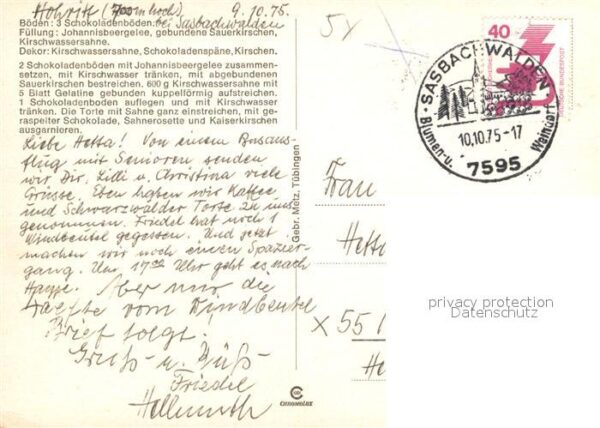 Hohritt (700 m hoch) 9.10.75.
bei Sasbachwalden
Böden: 3 Schokoladenböden.
Füllung: Johannisbeergelee, gebundene Sauerkirschen,
Kirschwassersahne.
Dekor: Kirschwassersahne, Schokoladenspäne, Kirschen.
2 Schokoladenböden mit Johannisbeergelee zusammen-
setzen, mit Kirschwasser tränken, mit abgebundenen
Sauerkirschen bestreichen. 600 g Kirschwassersahne mit
5 Blatt Gelatine gebunden kuppelförmig aufstreichen.
1 Schokoladenboden auflegen und mit Kirschwasser
tränken. Die Torte mit Sahne ganz einstreichen, mit ge-
raspelter Schokolade, Sahnerosette und Kaiserkirschen
ausgarnieren.
Liebe Hetta! Von einem Busaus-
flug mit Senioren senden
wir Dir, Lilli u. Christina viele
Grüsse. Eben haben wir Kaffee
und Schwarzwälder Torte zu uns
genommen. Friedel hat noch 1
Windbeutel gegessen. Und jetzt
machen wir noch einen Spazier-
gang. Um 17 Uhr geht es nach
Aber nur die
Haelfte vom Windbeutel
Brief folgt.
Gruß u. Küß
Friedel
Hellmuth
Gebr. Metz, Tübingen
CHROMOLUX
5x
40
DEUTSCHE BUNDESPOST
SASBACHWALDEN
10.10.75-17
Blumen-u. Weindorf
7595
Frau
Hetta
x 55
He
privacy protection
Datenschutz